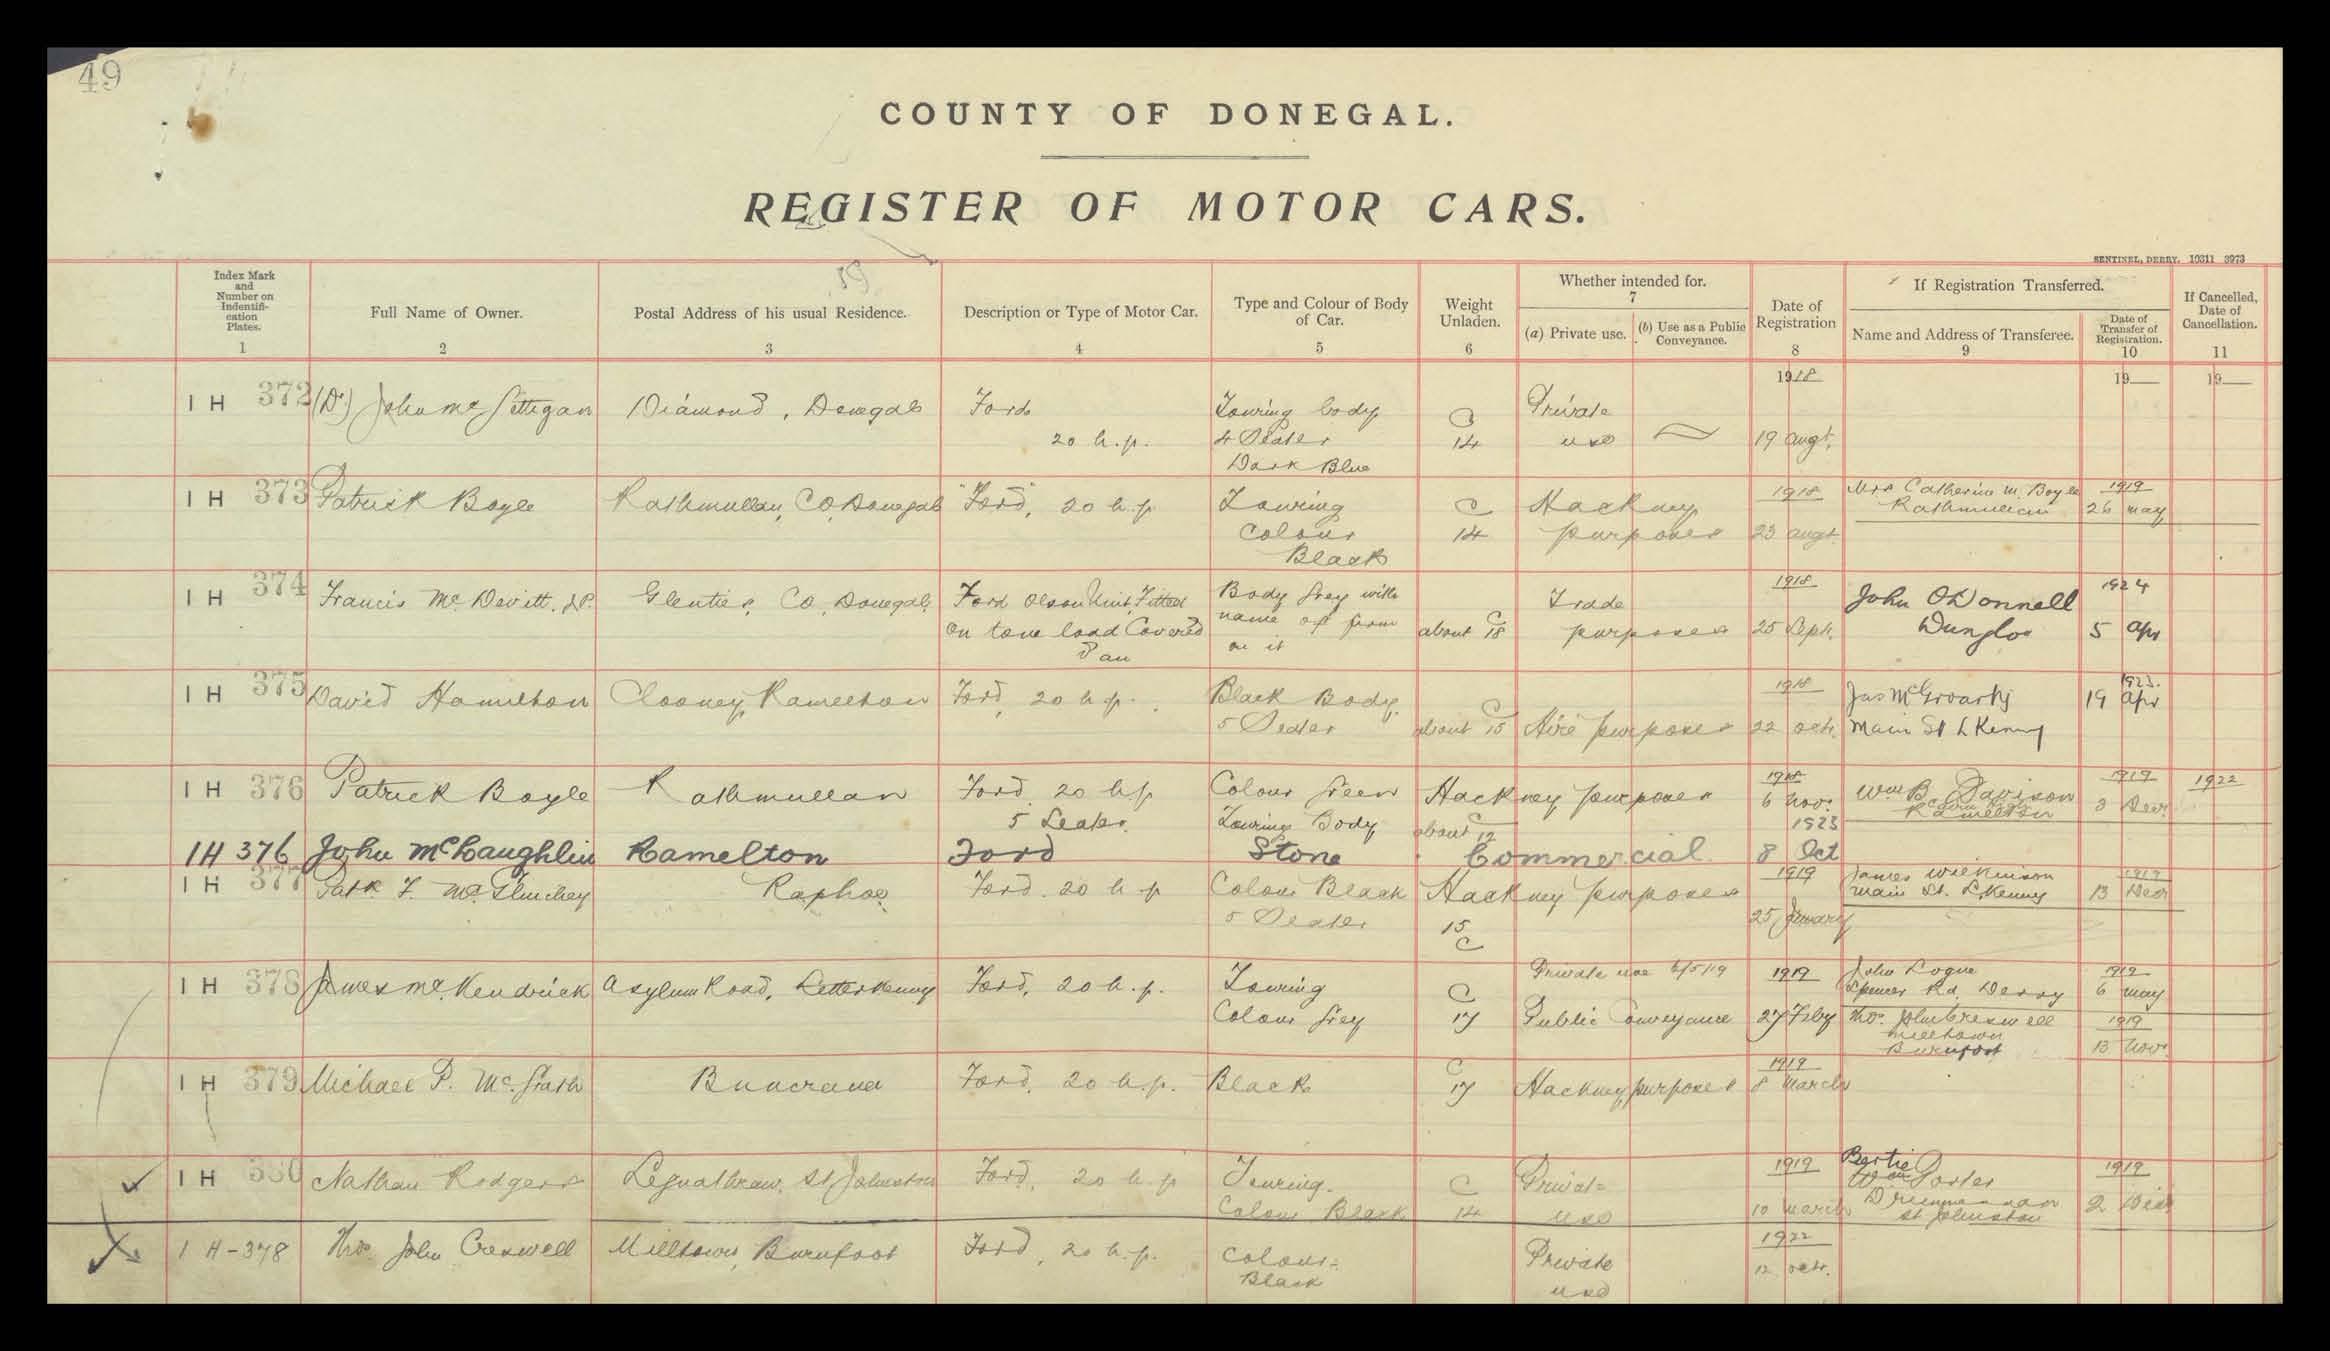 49
COUNTY OF DONEGAL.
REGISTER OF MOTOR CARS.
SENTINEL, DERRY. 10311 3973
Index Mark and Number on Indentifi-cation Plates. 1
Full Name of Owner. 2
Postal Address of his usual Residence. 3
Description or Type of Motor Car. 4
Type and Colour of Body of Car. 5
Weight Unladen. 6
Whether intended for. 7
(a) Private use.
(b) Use as a Public Conveyance.
Date of Registration 8
If Registration Transferred.
Name and Address of Transferee. 9
Date of Transfer of Registration. 10
If Cancelled, Date of Cancellation. 11
1918 19 19
I H 372 (Dr) John Mc Gettigan Diamond, Donegal Ford Touring body C Private
20 h.p. 4 Seater 14 use 19 augt.
Dark Blue
I H 373 Patrick Boyle Rathmullan, Co, Donegal "Ford", 20 h.p. Touring C Hackney 1918 Mrs Catherine M. Boyle 1919
Colour 14 purposes 23 augt. Rathmullan 26 may
Black
I H 374 Francis Mc Devitt, J.P. Glenties, Co, Donegal, Ford Olson Unit, Fitted Body Grey with C Trade 1918 John O'Donnell 1924
on tone load Covered name of firm about 18 purposes 25 Sept. Dungloe 5 Apr
Van on it
I H 375 David Hamilton Clooney, Ramelton Ford, 20 h.p. Black Body. C 1918 Jas McGroarty 1923. 19 Apr
5 Seater about 15 Hire purposes 22 octr. Main St LKenny
I H 376 Patrick Boyle Rathmullan Ford 20 h.p Colour Green Hackney purposes 1918 Wm B Davison 1919 1922
5 Seater. Touring Body about C 12 6 Novr. Ramelton 3 Decr
IH 376 John McLaughlin Ramelton Ford Stone Commercial 1923 8 Oct
I H 377 Patk F. Mc Glinchey Raphoe Ford 20 h p Colour Black Hackney purposes 1919 James Wilkinson 1919
5 Seater 15 C 25 January Main St. L,Kenny 13 Decr
I H 378 James Mc Kendrick Asylum Road, Letterkenny Ford, 20 h.p. Touring C Private use 6/5/19 1919 John Logue 1919
Spencer Rd, Derry 6 may
Colour Grey 17 Public Conveyance 27 Feby Thos. John Creswell 1919
Milltown
Burnfoot 13 Novr.
I H 379 Michael P. Mc. Grath Buncrana Ford, 20 h.p. Black C 17 Hackney purposes 1919 8 March
I H 380 Nathan Rodgers Legnathraw, St Johnston Ford, 20 h.p Touring. C Private 1919 Bertie 1919
Wm Porter
Colour Black 14 use 10 March Drumenan 2 Decr
St Johnston
I H-378 Thos. John Creswell Milltown, Burnfoot Ford, 20 h.p. Colour: Private 1922
Black use 12 octr.